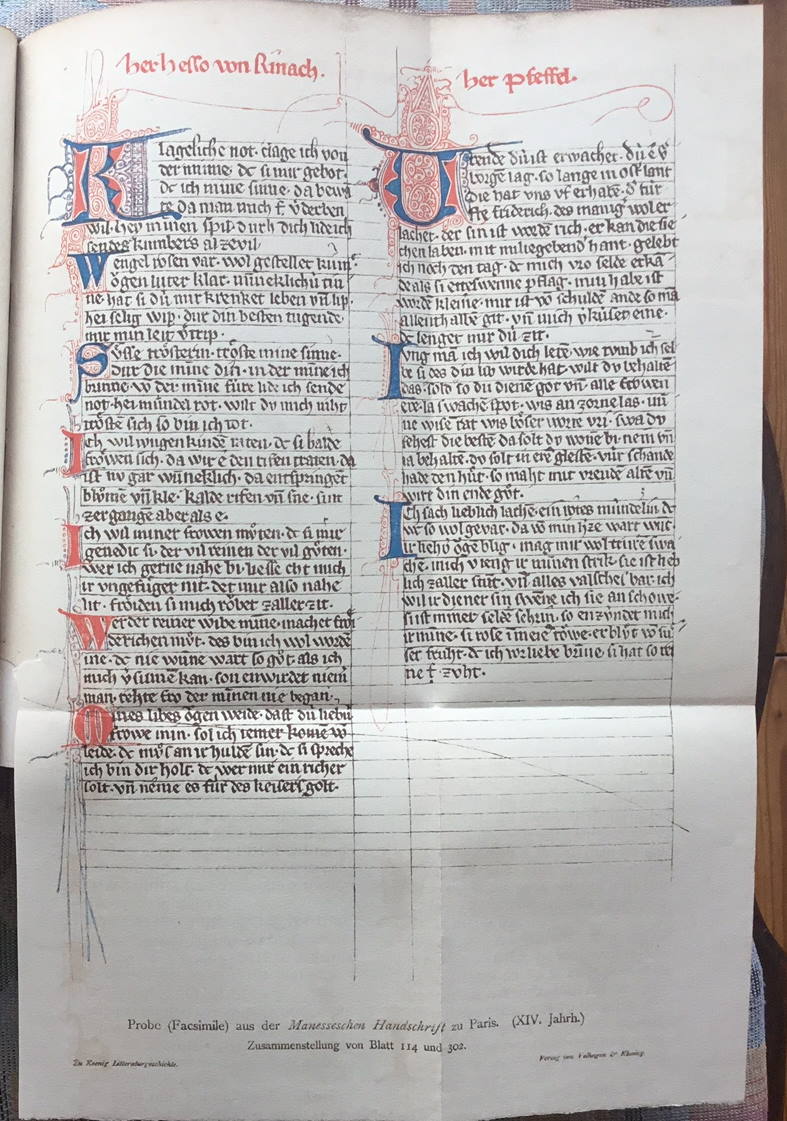 her hesso von Rinach.
Klageliche not. clage ich von
der minne. dc si mir gebot.
dc ich mine sinne. da bewa
te da man mich
wil. hey minnen spil. durh dich lide ich
sendes kumbers al ze vil.
Wengel rosen var. wol gestellet kinne.
ögen luter klar. minneklichú tin
ne. hat si dú mir krenket leben vñ lip.
hei selig wip. dur din besten tugende.
mir min leit
Süsse trösterin. tröste mine sinne.
dur die minne din. in der minne ich
brinne. vō der minne füre lide ich sende
not. hei mündel rot. wilt dv mich niht
trösten sich so bin ich tot.
Ich wil wngen kinden raten. dc si balde
fröwen sich. da wir e den risen traten. da
ist nv gar wnneklich. da entspringet
blůmē vñ kle. kalde rifen vñ sne. sint
zergangē aber als e.
Ich wil miner frowen můten. dc si mir
genedic si. der vil reinen der vil gůten.
wer ich gerne nahe bi. liesse eht mich
ir vngefüger nit. der mir also nahe
lit. fröiden si mich röbet zaller zit.
Werder reiner wibe minne. machet
derichen můt. des bin ich wol wordē
inne. dc nie wūne wart so gůt. als ich
mich v̄sinnē kan. son enwirdet niem̄
man. rehte fro der minnen nie began.
Mines libes ögen weide. dast dú liebú
frowe min. sol ich iemer komē vō
leide. dc můs an ir huldē sin. dc si spreche
ich bin dir holt. dc wer mir ein richer
solt. vñ nēme es für des keisers golt.
her Pfeffel.
Vrende dú ist erwachet. dú
borgē lag. so lange in ost lant
die hat vns vf erhabē. d' für
ste friderich. des manig' wol er
lachet. der sin ist wordē rich. er kan die sie
chen laben. mit milie gebend' hant. gelebt
ich noch den tag. dc mich vro selde erkā
de als si etteswenne pflag. min habe ist
wordē kleine. mir ist vō schuldē ande so mā
allenthalbē git. vñ mich
dc lenger mir dú zit.
Ivng mā ich wil dich lerē. wie tvmb ich sel
be si des din lib wirde hat. wilt dv behaltē
das. sold so dv dienē got vñ alle frowen
ere. la swachē spot. wis an zorne las. vñ
ne wisē rat wis böser worte vri. swa dv
sehest die bestē da solt dv wonē bi. nem
ra behaltē. dv solt in erē glestē. vúr schande
habē den hůt. so maht mit vreude altē vñ
wirt din ende gůt.
Ich sach lieblich lachē. ein rotes mündelin dc
wc so wol gevar. da vō min h'ze wart wnt.
ir liehtē ögē blig. mag mir wol trure swa
chē. mich vieng ir minnen strik. sie ist
lich zaller stūt. vñ alles valsches bar. ich
wil ir diener sin swēne ich sie an schowe.
si ist miner seldē schrin. so enzündet mich
ir minne. si rose in meiē towe. er blýt vō sů
ser fruht. dc ich vor liebe brinne. si hat so rei
ne zvht.
Probe (Facsimile) aus der Manesseschen Handschrift zu Paris. (XIV. Jahrh.)
Zusammenstellung von Blatt 114 und 302.
Zu Koenig Litteraturgeschichte.
Verlag von Velhagen & Klasing.